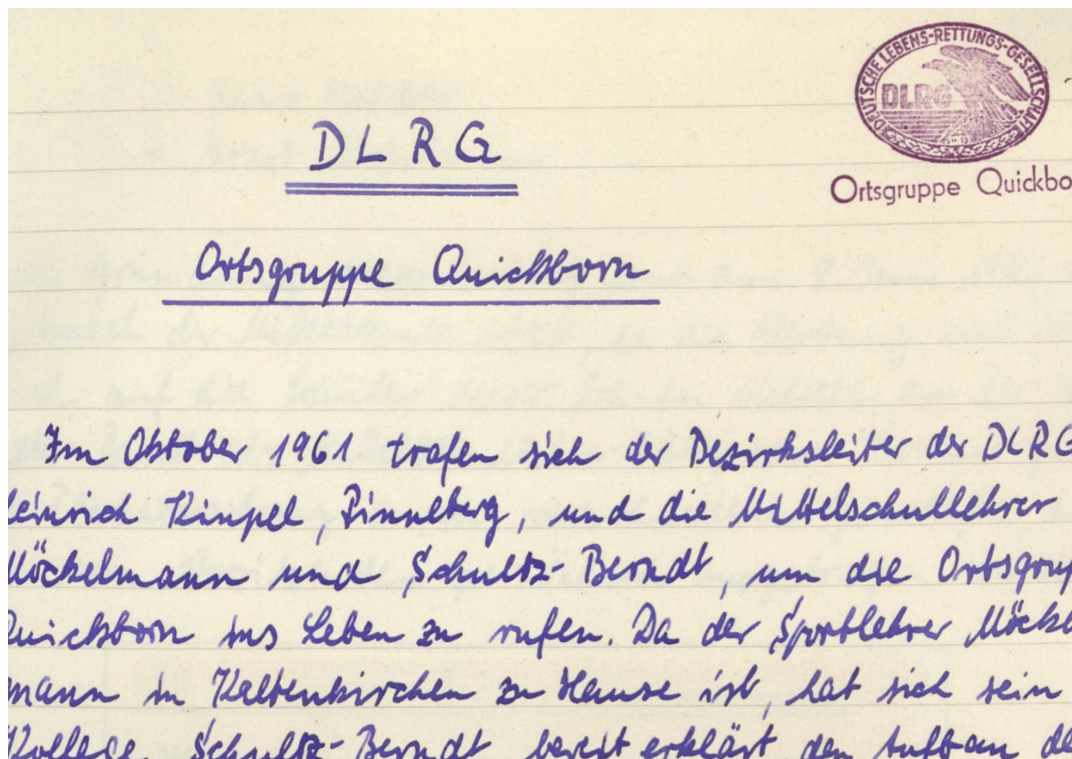 DEUTSCHE LEBENS-RETTUNGS-GESELLSCHAFT
DLRG
Ortsgruppe Quickbo
DLRG
Ortsgruppe Quickborn
Im Oktober 1961 trafen sich der Bezirksleiter der DLRG
einrich Kimpel, Pinneberg, und die Mittelschullehrer
Möckelmann und Schultz-Berndt, um die Ortsgrup
Quickborn ins Leben zu rufen. Da der Sportlehrer Möckel
mann in Kaltenkirchen zu Hause ist, hat sich sein
Kollege, Schultz-Berndt bereit erklärt, den Aufbau de